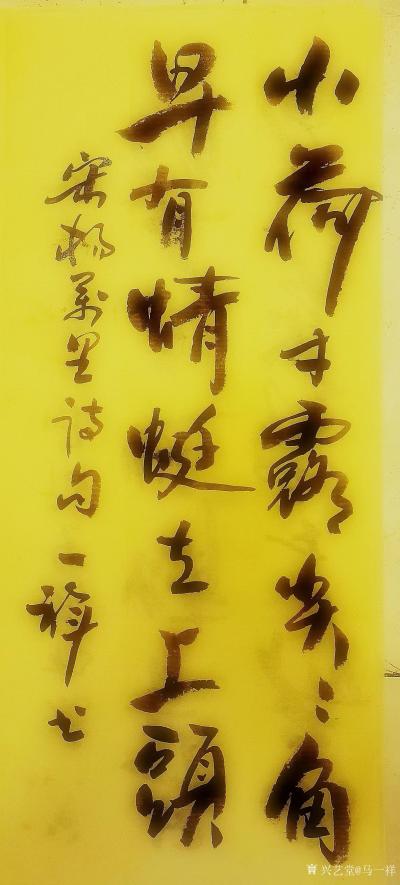 小荷才露尖〻角
早有蜻蜓立上頭
宋楊萬里詩句一样书
兴艺堂@马一样